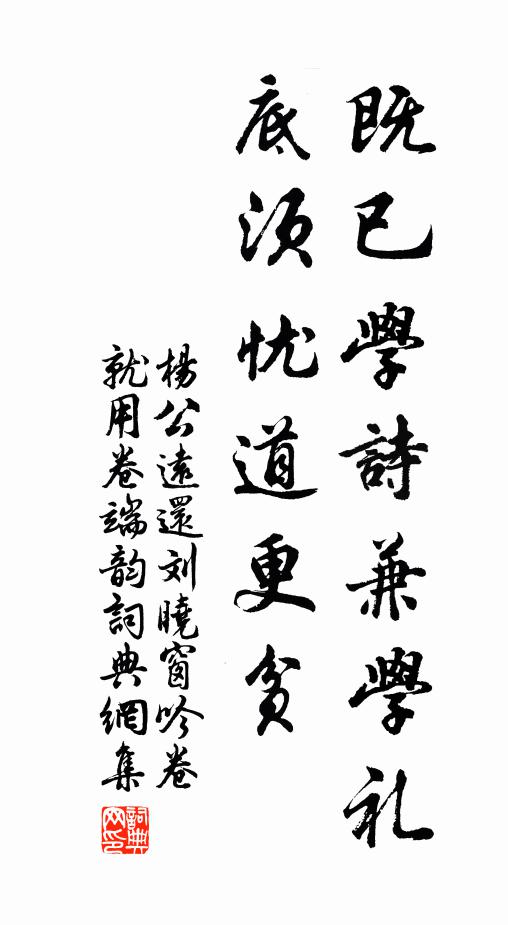 既已學詩兼學礼
底须忧道更貧
楊公遠還刘曉窗吟卷
就用卷端韵詞典網集
詞典网印